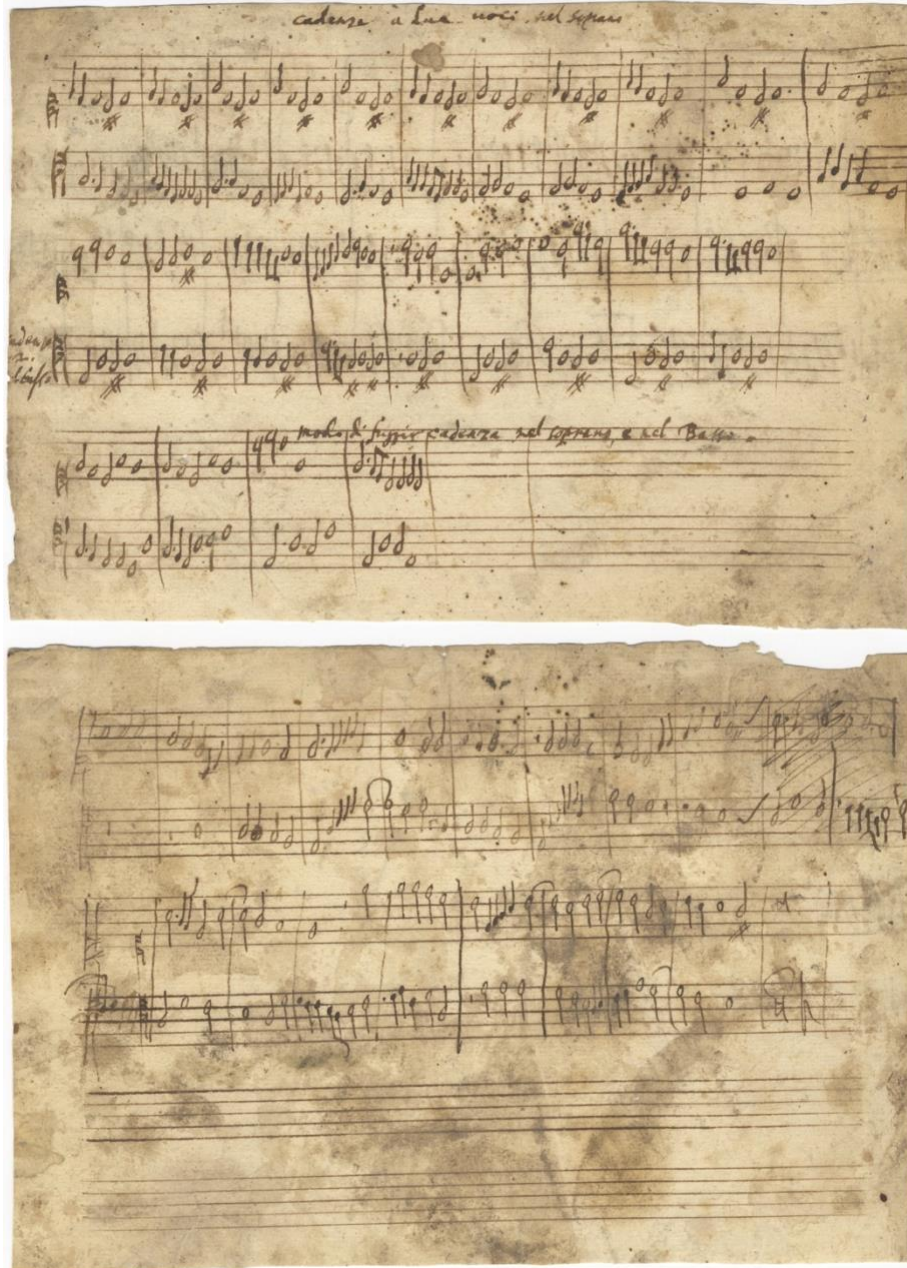 cadenze a due voci nel soprano
modo di fuggir cadenza nel soprano, e nel Basso.